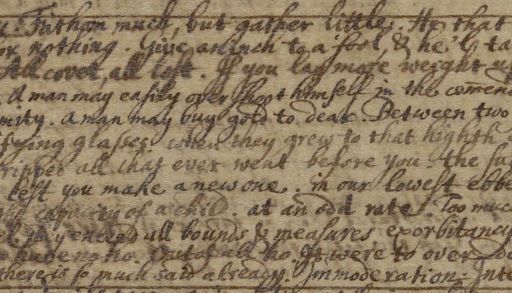 Fathom much, but gather little. He that
for nothing. Give an inch to a fool, & he'l ta
All covet, all lost. If you lay more weight up
A man may easily over shoot himself in the comend
mity. A man may buy gold to dear. Between two
fying glasses. when they grew to that highth
all that ever went before you the
left you make a new one. in our lowest ebbe
capacity of a child. at an odd rate. Too much
they exceed all bounds & measures exorbitancy
out of all ho. It were to over do
there is so much said already. Immoderation. Inte